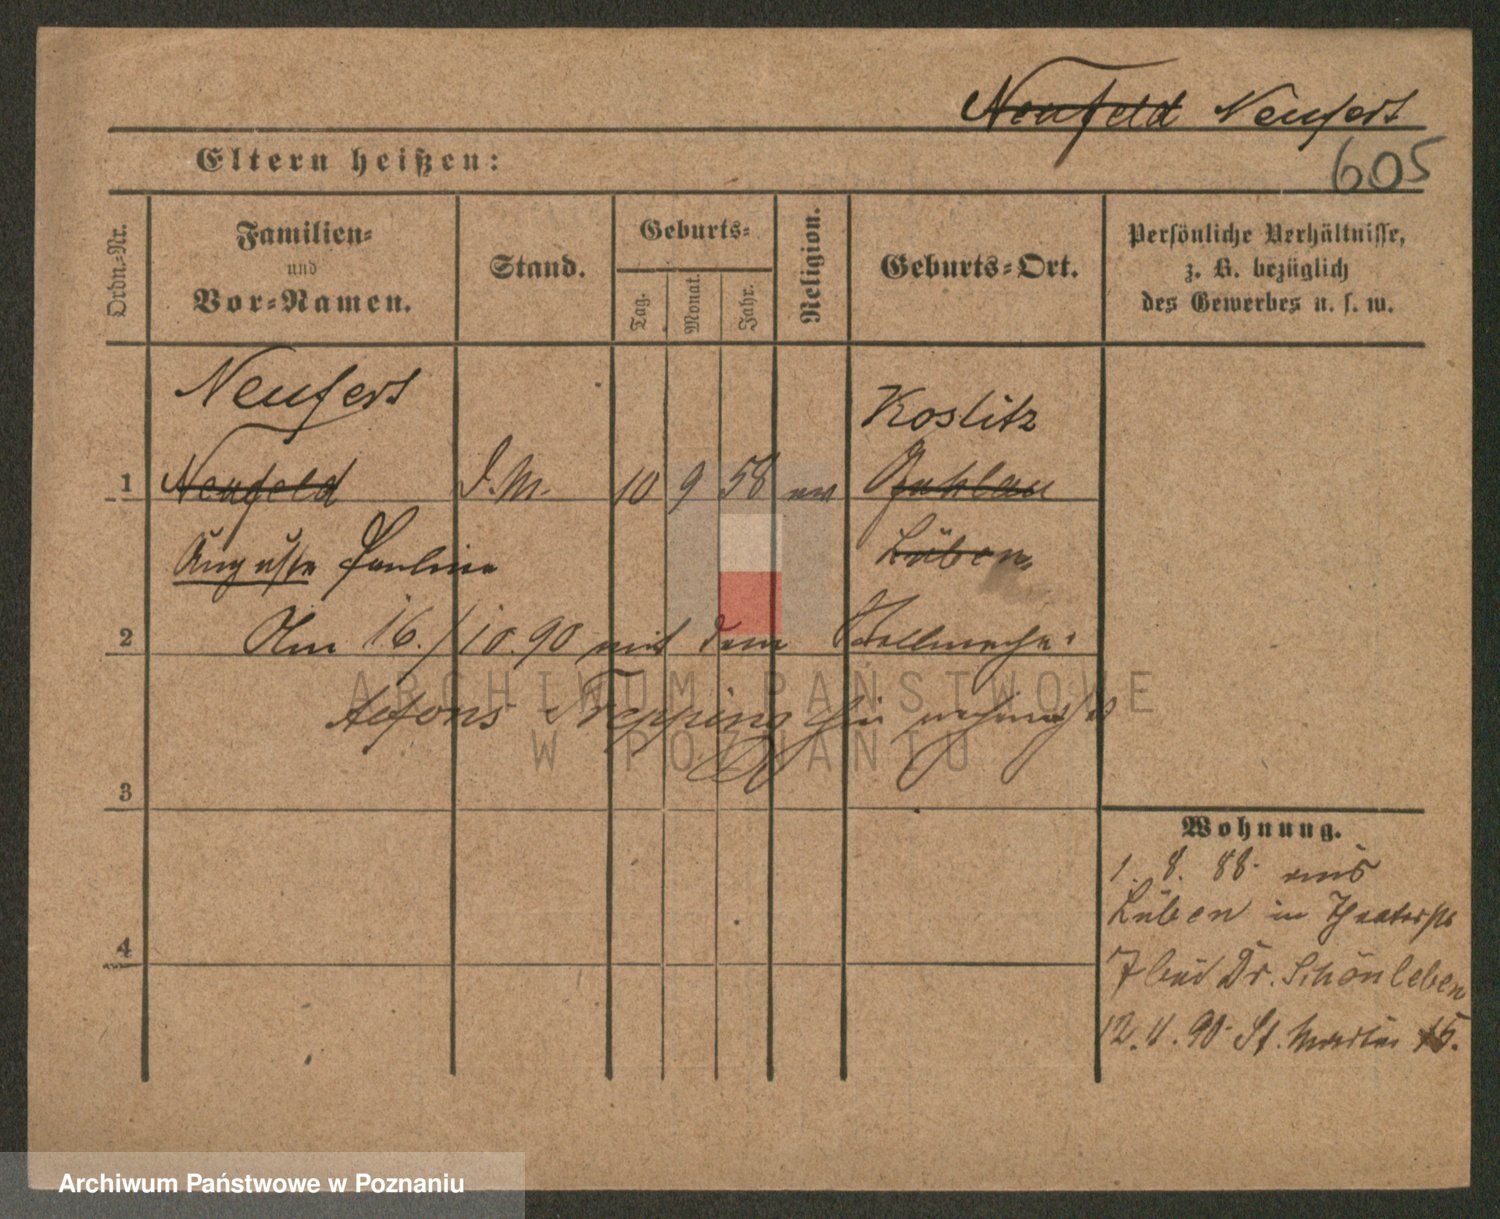 Neufeld Neufert
605
Eltern heißen:
Ordn.-Nr.
Familien-
und
Vor-Namen.
Stand.
Geburts-
Tag.
Monat.
Jahr.
Religion.
Geburts-Ort.
Persönliche Verhältnisse,
z. B. bezüglich
des Gewerbes u. s. w.
Neufert
Koslitz
1 Neufeld D.M. 10 9 58 ev Guhlau
Auguste Pauline Lüben
2 Am 16./10.90 mit dem
Alfons Trepping
3
Wohnung.
1. 8. 88. aus
Lüben in Theaterstr
7 bei Dr. Schönleben
4
12. 11. 90. St. Martin 15.
ARCHIWUM PAŃSTWOWE
W POZNANIU
Archiwum Państwowe w Poznaniu